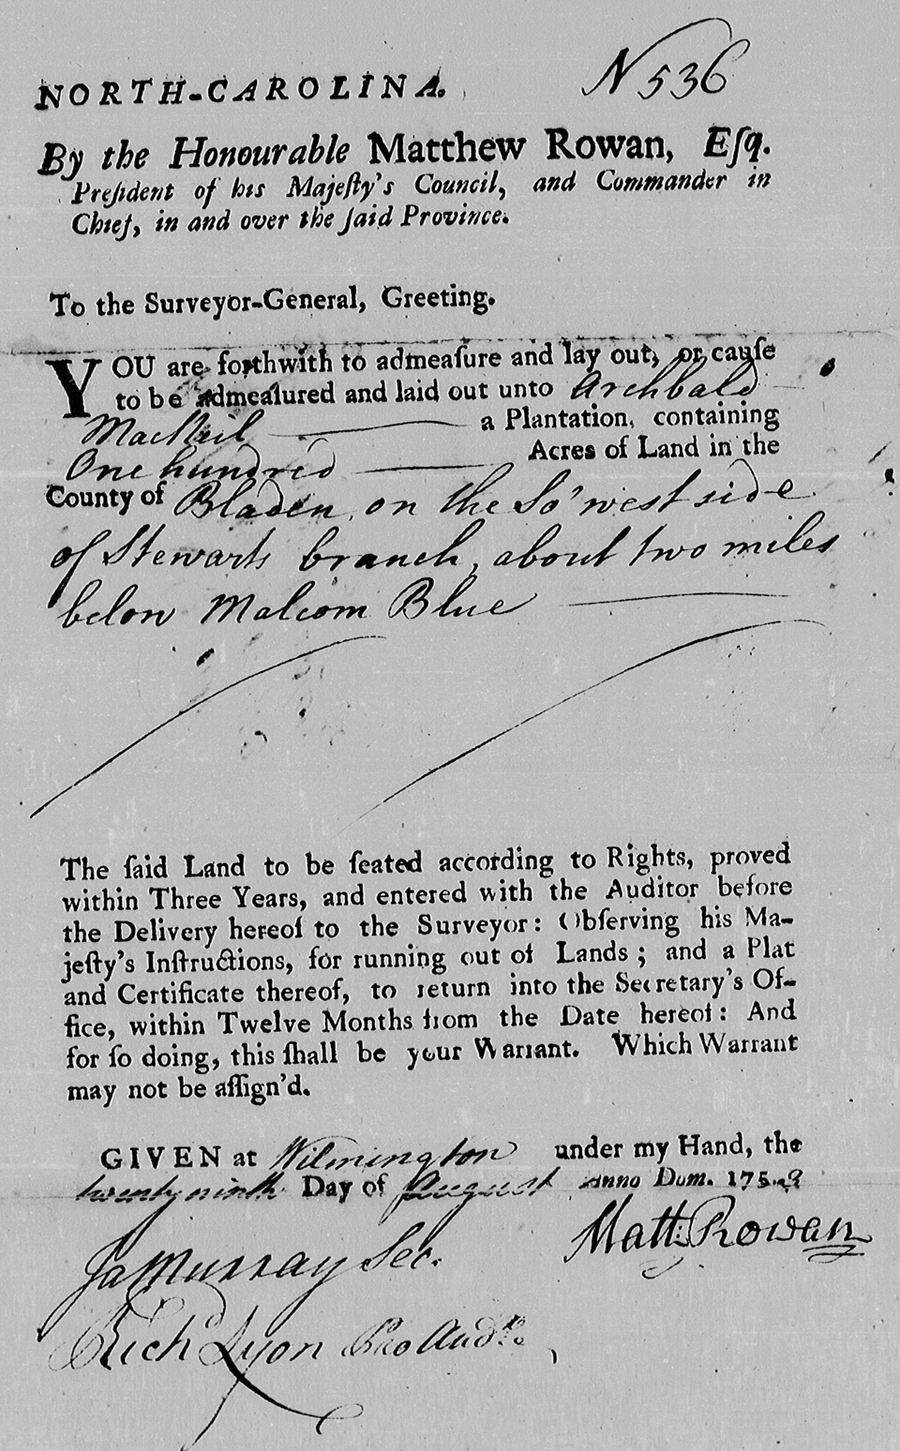 N 536
NORTH-CAROLINA.
By the Honourable Matthew Rowan, Eſq.
Preſident of his Majeſty's Council, and Commander in
Chief, in and over the ſaid Province.
To the Surveyor-General, Greeting.
YOU are forthwith to admeaſure and lay out, or cauſe
to be admeaſured and laid out unto Archbald
MacNeil a Plantation, containing
One hundred Acres of Land in the
County of Bladen, on the So' west side
of Stewarts branch, about two miles
below Malcom Blue
The ſaid Land to be ſeated according to Rights, proved
within Three Years, and entered with the Auditor before
the Delivery hereof to the Surveyor: Obſerving his Ma-
jeſty's Inſtructions, for running out of Lands; and a Plat
and Certificate thereof, to return into the Secretary's Of-
fice, within Twelve Months from the Date hereof: And
for ſo doing, this ſhall be your Warrant. Which Warrant
may not be aſſign'd.
GIVEN at Wilmington under my Hand, the
twentyninth Day of August Anno Dom. 175
Matt: Rowan
Ja Murray Sec.
Richd Lyon Pro Audr.